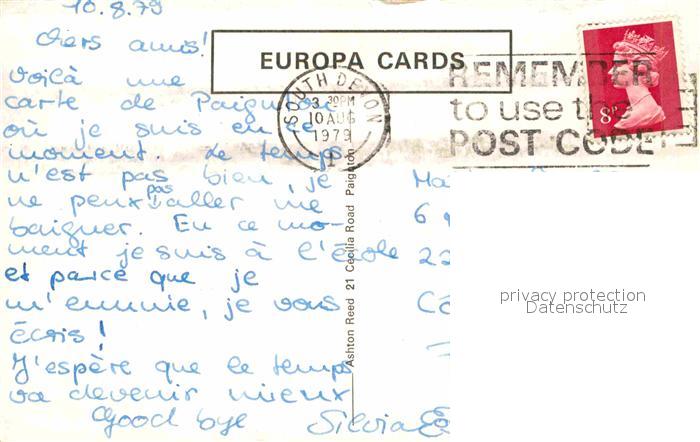 10.8.79
chers amis!
EUROPA CARDS
Voilà une
carte de Paignton
où je suis en ce
moment. Le temps
n'est pas bien, je
ne peux pas aller me
baigner. En ce mo-
ment je suis à l'école
et parce que je
m'ennuie, je vous
écris!
J'espère que le temps
va devenir mieux
Good bye Silvia
SOUTH DEVON
3 30PM
10 AUG
1979
REMEMBER
to use the
POST CODE
8P
Ashton Reed 21 Cecilia Road Paignton
Ma
6
22
privacy protection
Datenschutz